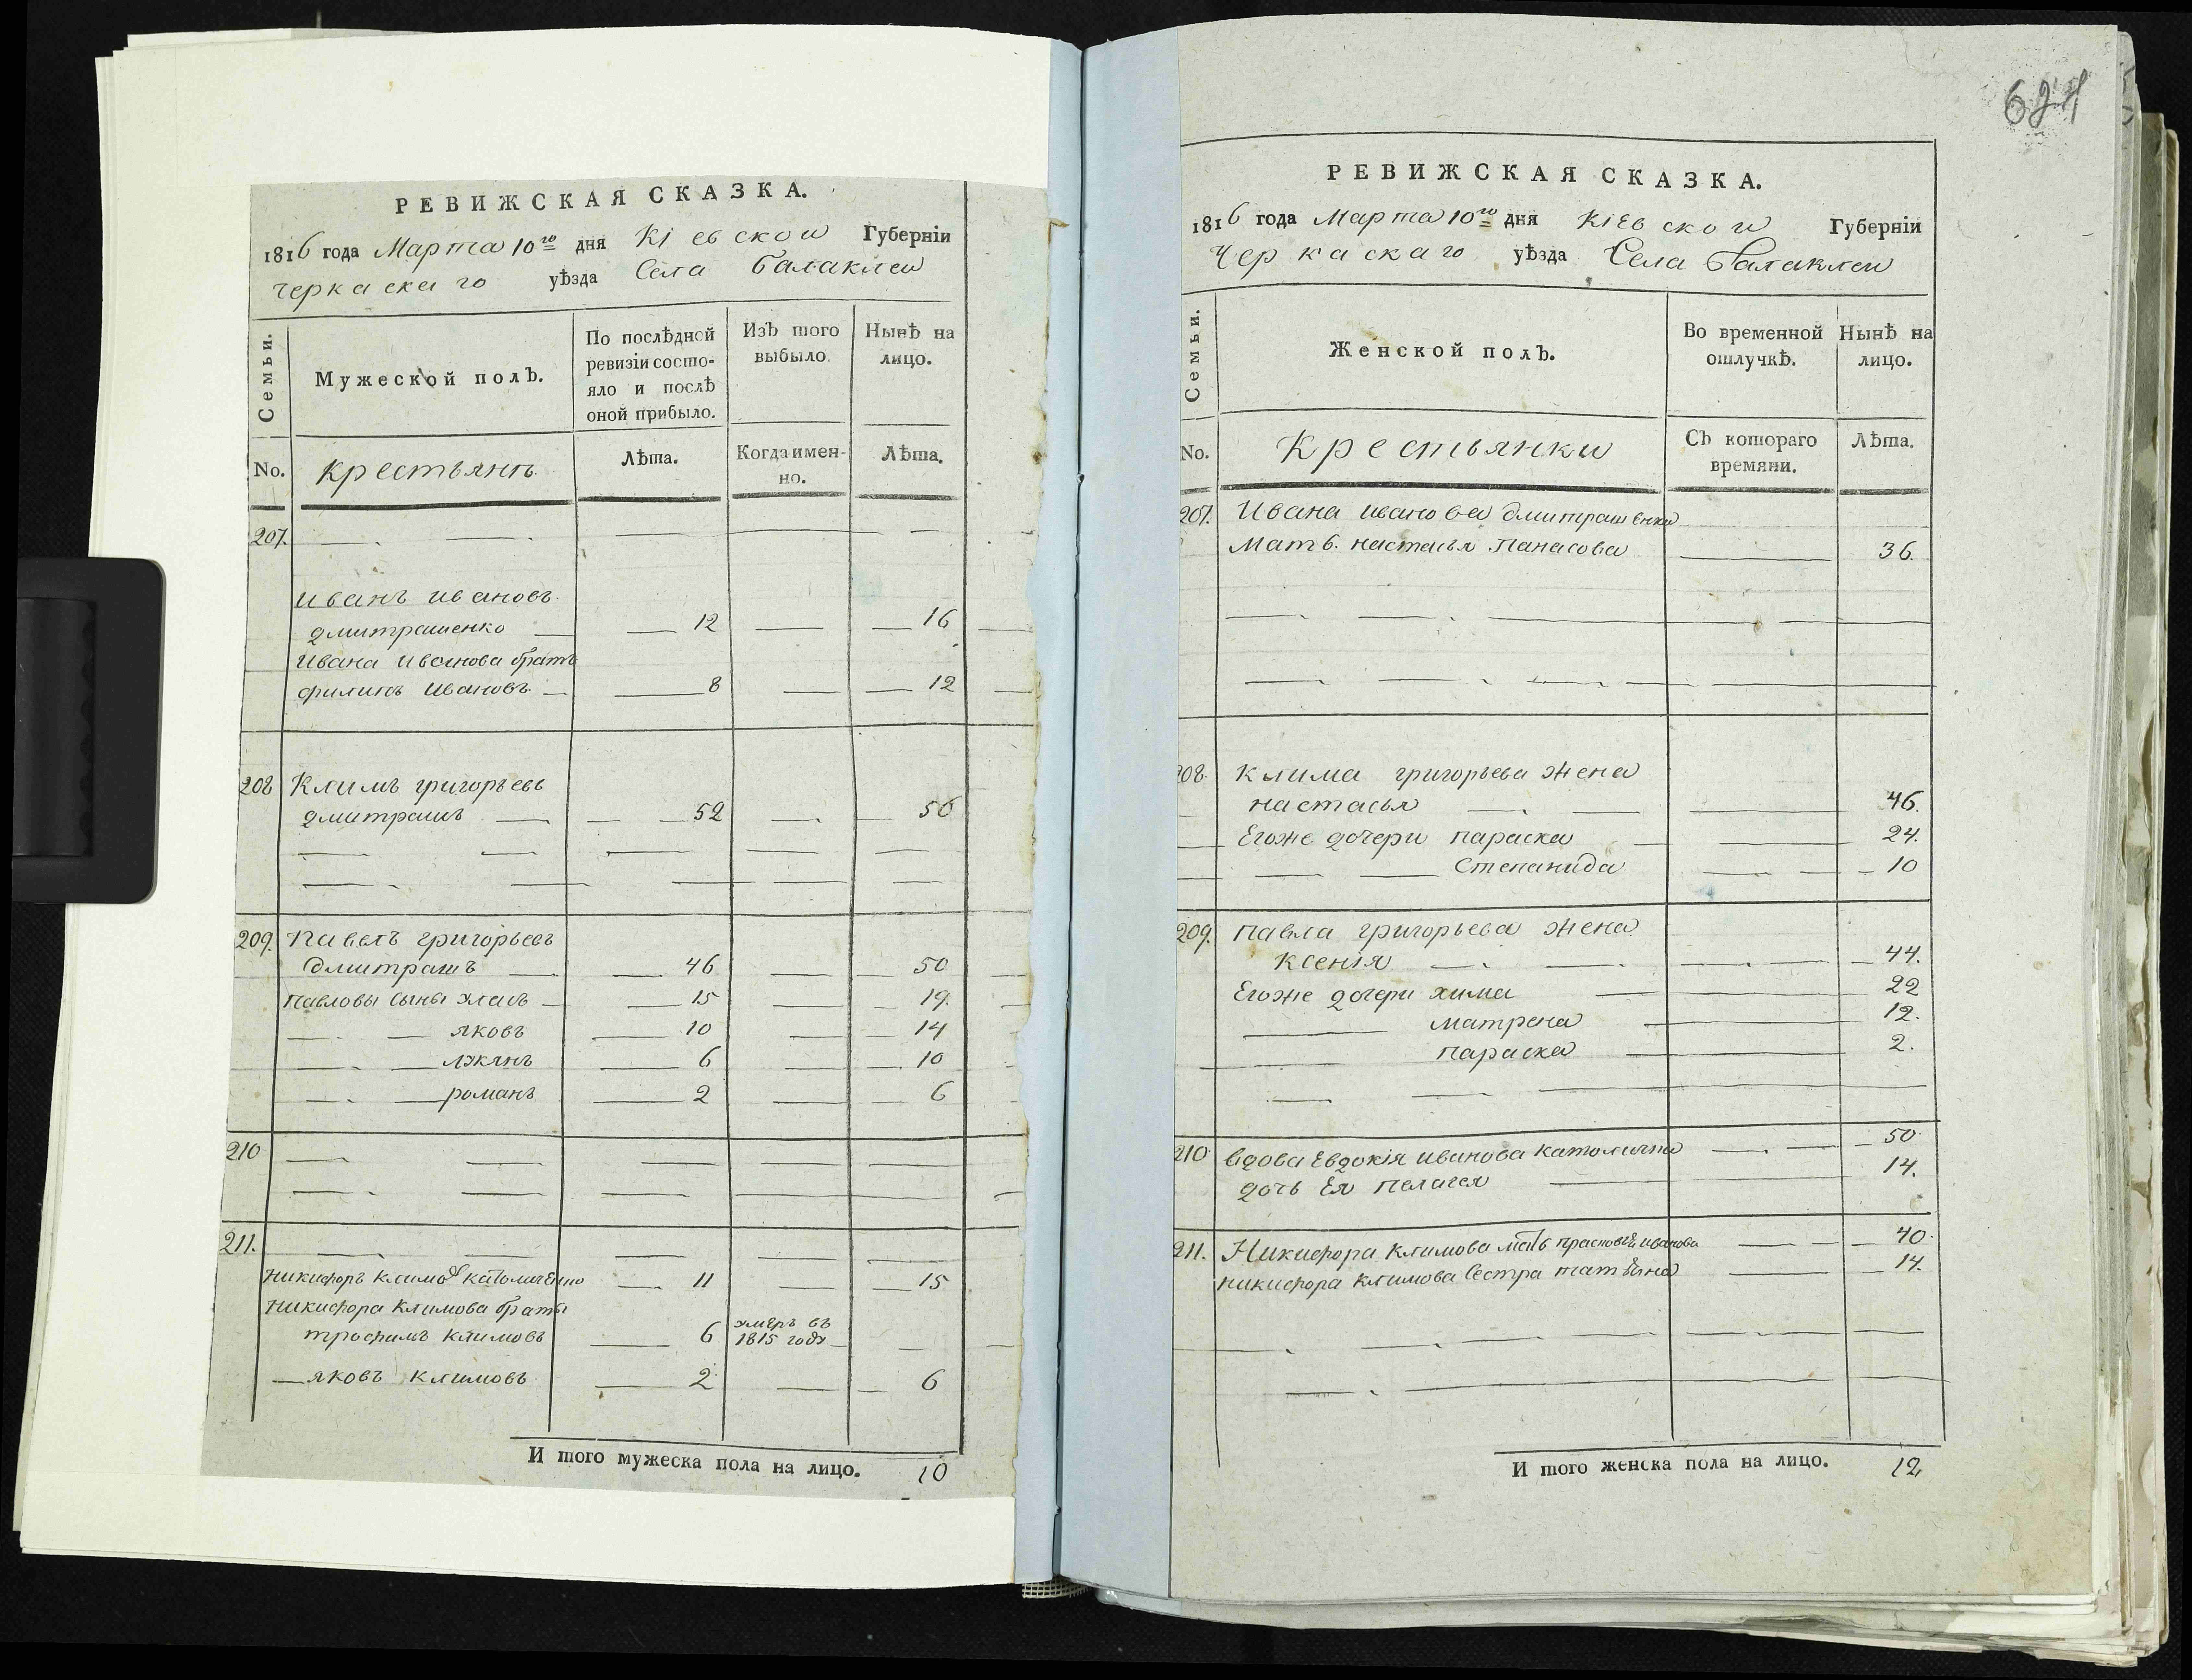 РЕВИЖСКАЯ СКАЗКА.
1816 года Марта 10го дня Кіевской Губерніи
черкаскаго уѣзда Села балаклеи
Семьи.
Мужеской полЪ.
По послѣдней ревизіи состояло и послѣ оной прибыло.
ИзЪ того выбыло.
НынѢ на лицо.
No.
крестьянъ
Лѣта.
Когда именно.
Лѣта.
207.
иванъ ивановъ
дмитрашенко 12 16
Ивана Иванова братъ
филипъ Ивановъ 8 12
208 Климъ григорьевъ
дмитрашъ 52 56
209. Павелъ григорьевъ
дмитрашъ 46 50
павловы сыны власъ 15 19.
яковъ 10 14
6 10
романъ 2 6
210
211.
никифоръ климовъ католиченко 11 15
никифора климова браты
трофимъ климовъ 6 умеръ въ 1815 году
яковъ климовъ 2 6
И того мужеска пола на лицо. 10
624
РЕВИЖСКАЯ СКАЗКА.
1816 года Марта 10го дня Кіевской Губерніи
Черкаскаго уѣзда Села Балаклеи
Семьи.
Женской полЪ.
Во временной отлучкѣ.
НынѢ на лицо.
No.
Крестьянки
СЪ котораго времяни.
Лѣта.
207. Ивана иванова дмитрашенка
Мать настасья Панасова 36.
208. клима григорьева жена
настасья 46.
Егоже дочери параска 24.
Степанида 10
209. павла григорьева жена
ксенія 44.
Егоже дочери хима 22
матрена 12.
параска 2.
210 вдова Евдокія иванова католичка 50
дочь Ея пелагея 14.
211. Никифора климова мать прасковья иванова 40.
никифора климова сестра татьяна 14.
И того женска пола на лицо. 12